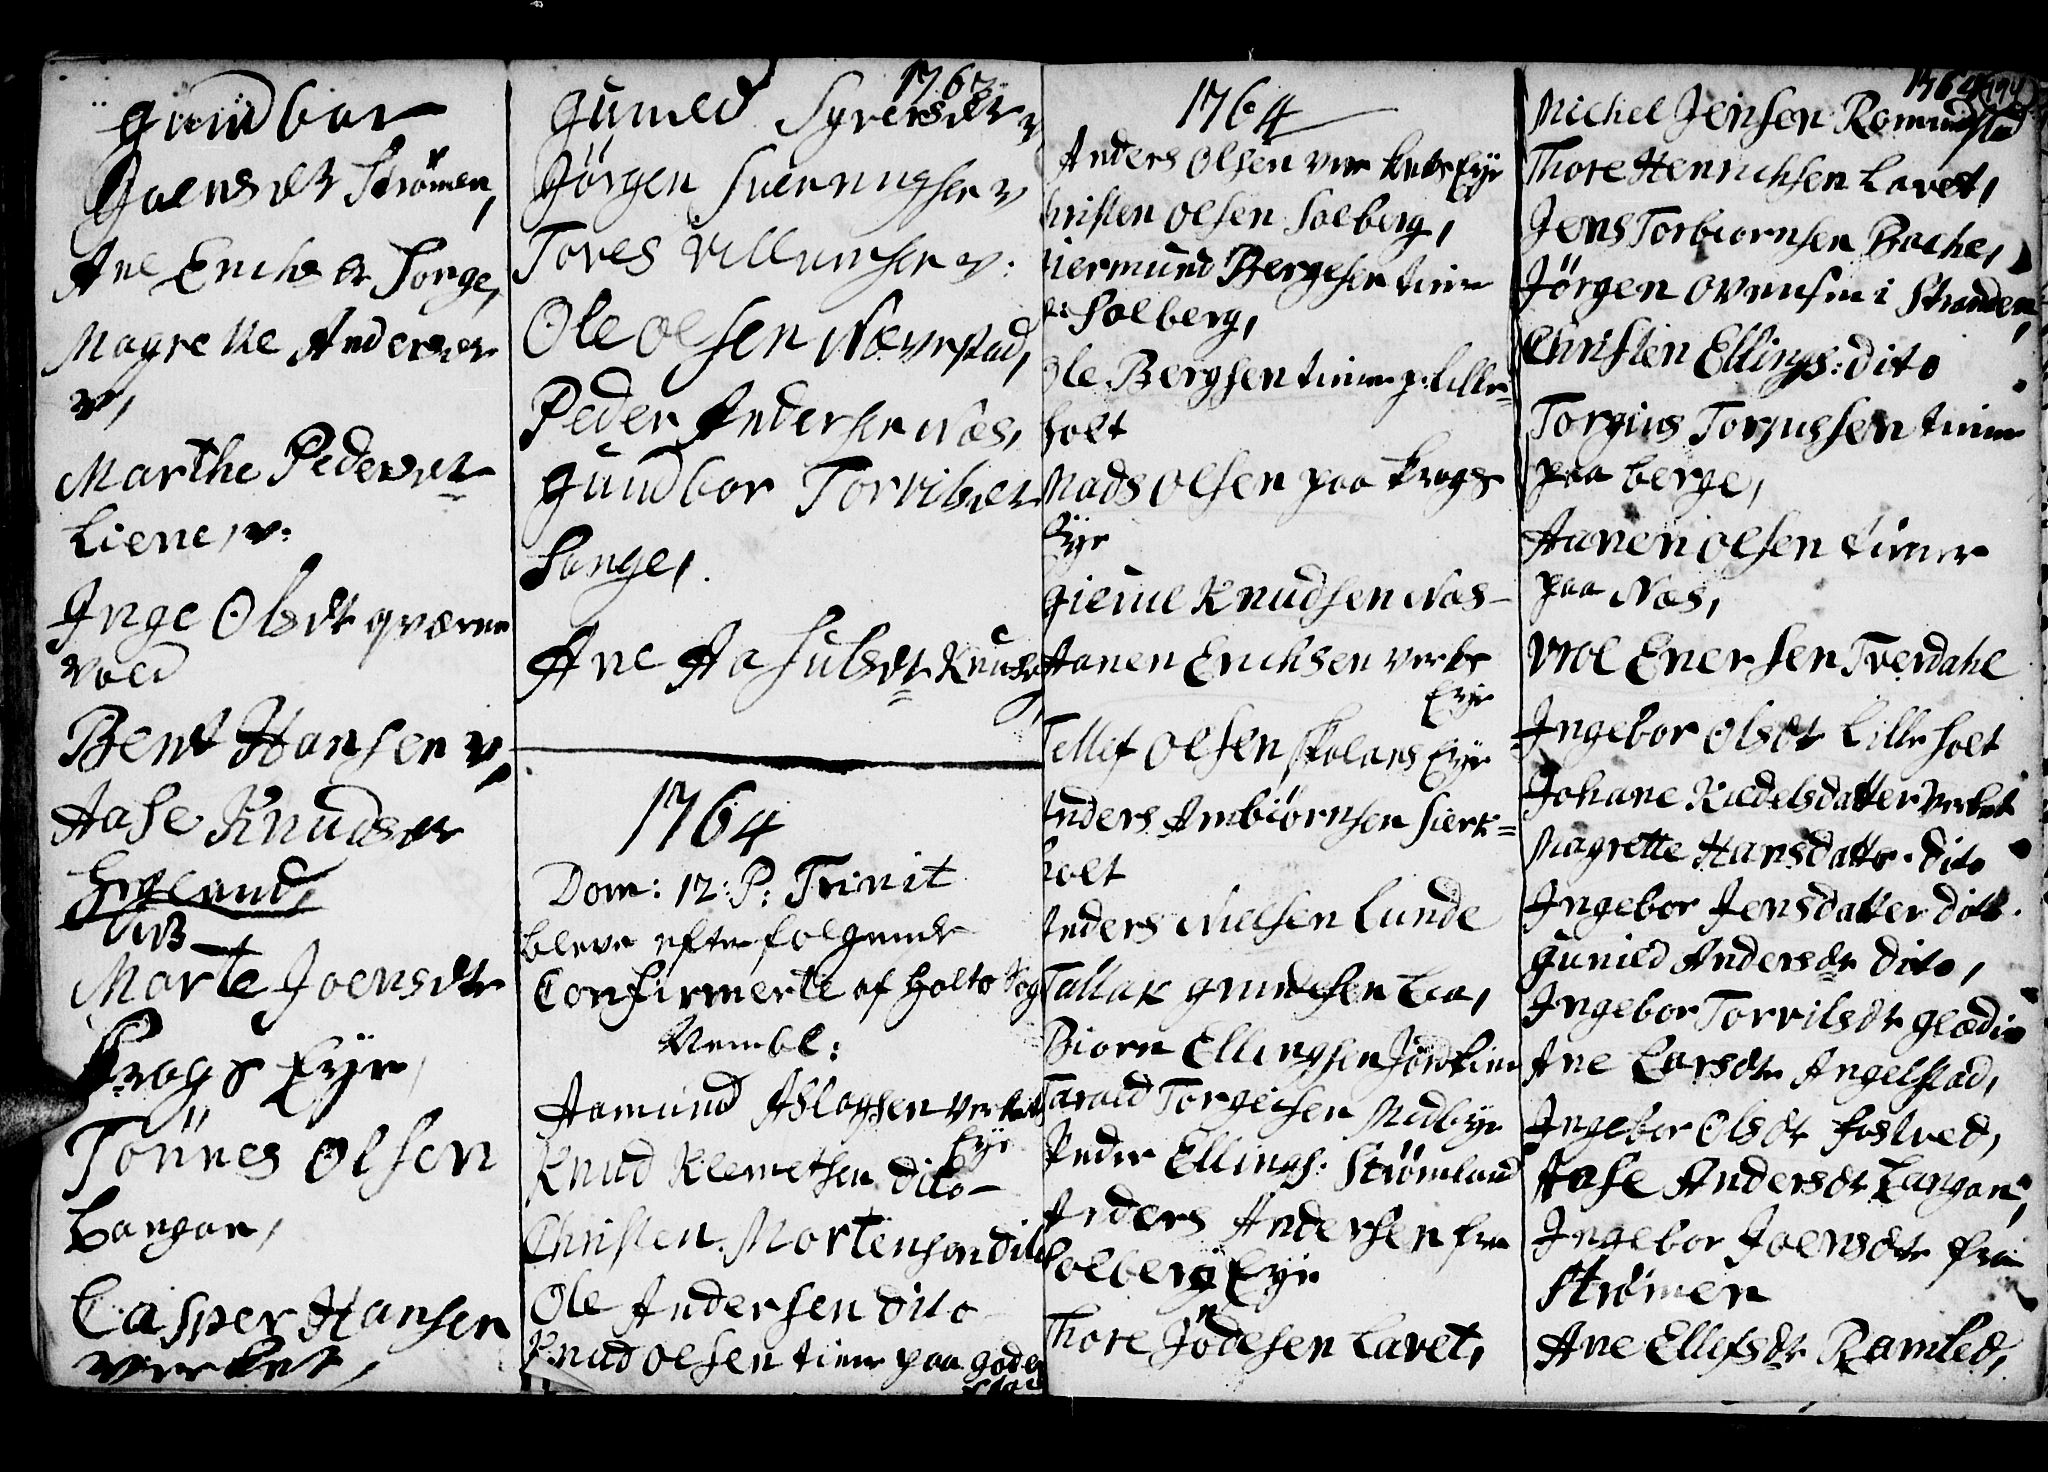 Gundbor
Joensdtr Strømen,
Ane Erichsdtr Songe,
Magrette Andersdtr
v,
Marthe Pedersdtr
Liene, v:
Inge Olsdtr qværne
vold
Bent Hansen v,
Aase Knudsdtr
Eigeland,
Marte Joensdtr
Krogs Eye,
Tönnes Olsen
Langan,
Casper Hansen
Verket,
1763
Guned Syversdtr v
Jörgen Svenningsen v
Tores Villumsen v:
Ole Olsen Næverstad,
Peder Andersen Næs,
Gundbor Torrilsdtr
Songe,
Ane Aasulsdtr
1764
Dom: 12: P: Trinit
bleve efterfølgende
Confirmerte af Holts Sog
Nembl:
Aamund Aslagsen Verkets
Eye
Knud Klemetsen dito
Christen Mortensen dito
Ole Andersen dito
Knud Olsen tiener paa Goder
1764
Anders Olsen Verkets Eye
Christen Olsen Solberg,
Giermund Bergesen tiener
Solberg,
Ole Bergsen tiener p: Lille=
holt
Mads Olsen paa Krogs
Eye
Gierul Knudsen Næs
Aanen Erichsen Verkets
Eye
Tellef Olsen Skolans Eye
Anders Ambiörnsen Sierk=
holt
Anders Nielsen Lunde
Tallak Gundersen Lia,
Biørn Ellingsen
Tarald Torgiersen Nabye
Peder Ellings: Strømland
Anders Andersen fra
Solberg Eye
Thore Jödesen Lavet,
1764
Michel Jensen Romundstad
Thore Henrichsen Lavet,
Jens Torbiørnsen Bache,
Jörgen Ovensen i Stranden,
Christen Ellings: dito
Torgius Torjussen tiener
paa Berge,
Aanen Olsen tiener
paa Næs,
Vrol Enersen Tverdahl
Ingebor Olsdtr Lilleholt
Johane Kiedelsdatter Verket
Magrette Hansdatter dito
Ingebor Jensdatter dito
Guned Andersdtr dito,
Ingebor Torrilsdtr
Ane Larsdtr Angelstad,
Ingebor Olsdtr Fosved,
Aase Andersdtr Langan,
Ingebor Joensdtr fra
Strømen
Ane Ellefsdtr Ramled,